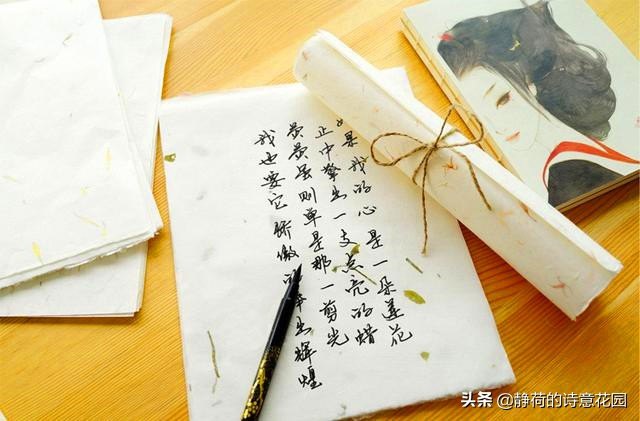 果我的心是一朵莲花
正中擎出一支点亮的蜡
荧荧虽则单是那一剪光
我也要它骄傲的捧出辉煌
头条 @静荷的诗意花园